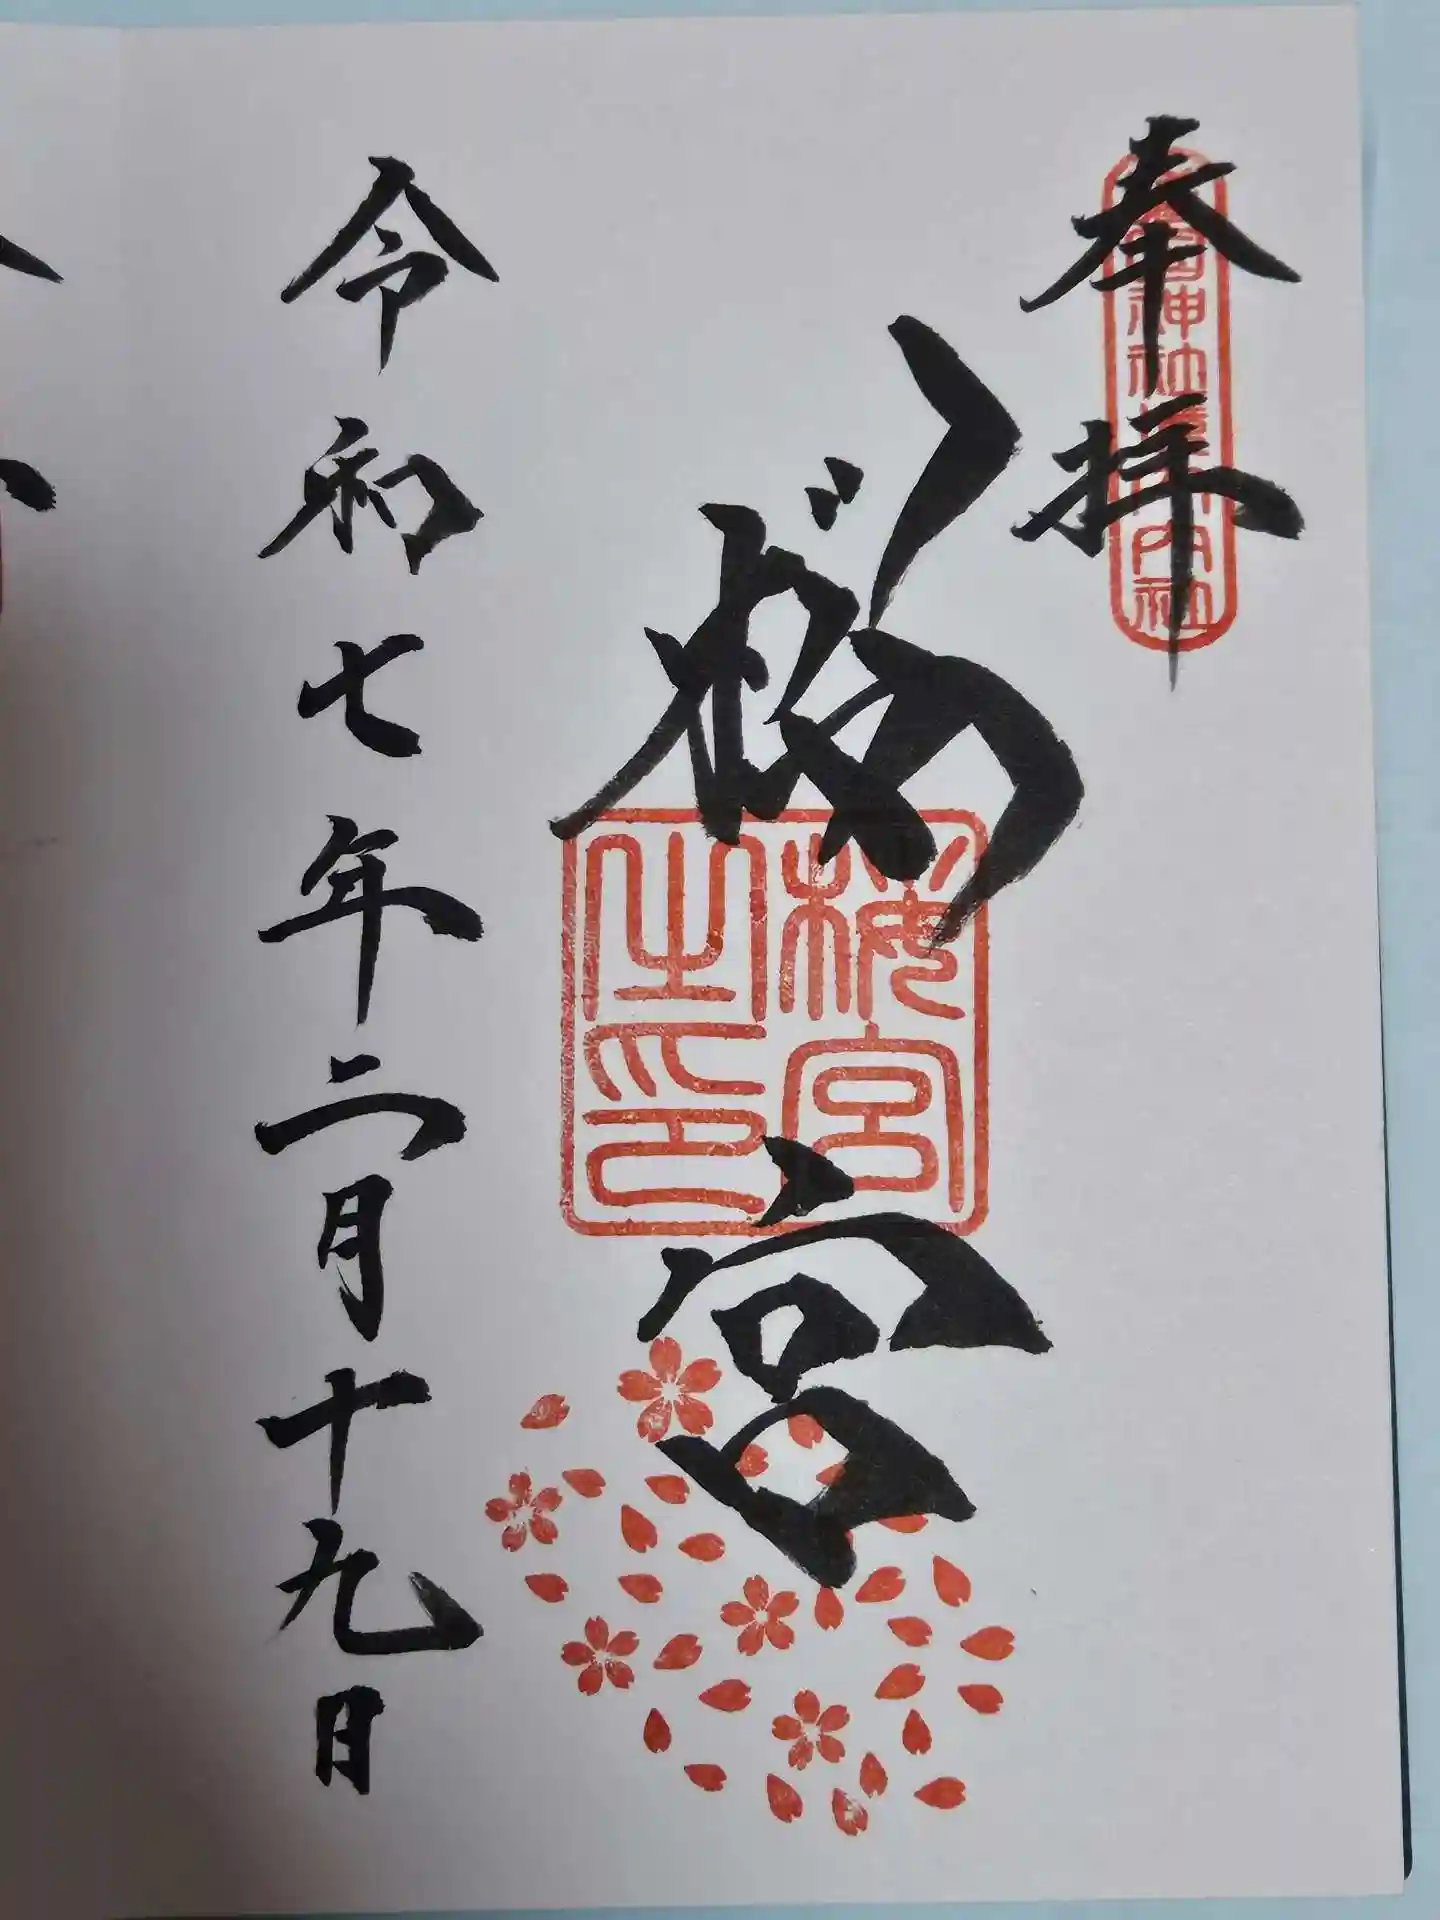 奉拝
神社
内社
桜宮
桜宮
之印
令和七年二月十九日